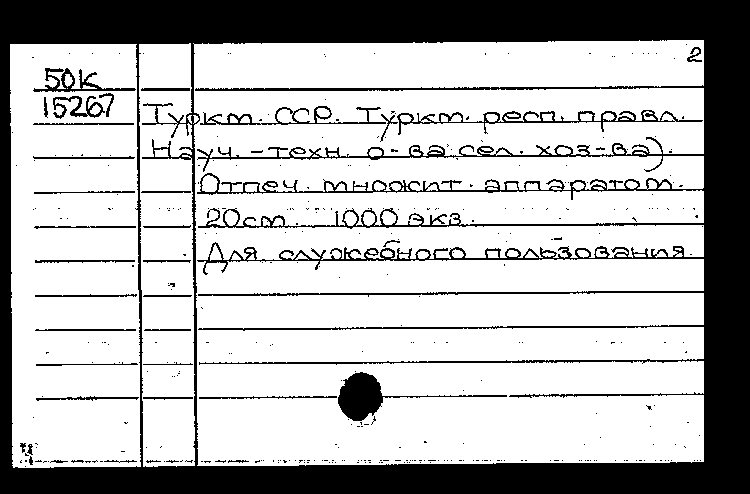 2
50К
15267
Туркм. ССР. Туркм. респ. правл.
Науч.-техн. о-ва сел. хоз-ва).
Отпеч. множит. аппаратом.
20см. 1000 экз.
Для служебного пользования